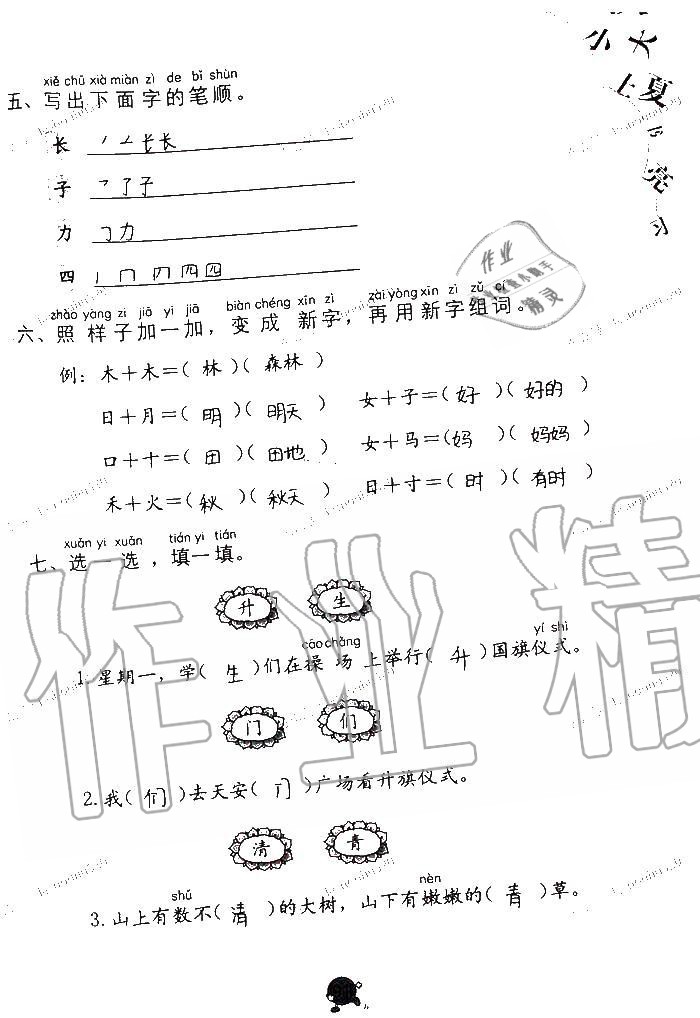 xiě chū xià miàn zì de bǐ shùn
五、写出下面字的笔顺。
长
子 了子
力 力
四 四
zhào yàng zi jiā yi jiā biàn chéng xīn zì zài yòng xīn zì zǔ cí
六、照样子加一加，变成新字，再用新字组词。
例：木＋木＝( 林 )( 森林 )
日＋月＝( 明 )( 明天 ) 女＋子＝( 好 )( 好的 )
口＋十＝( 田 )( 田地 ) 女＋马＝( 妈 )( 妈妈 )
禾＋火＝( 秋 )( 秋天 ) 日＋寸＝( 时 )( 有时 )
xuǎn yi xuǎn tián yi tián
七、选一选，填一填。
升 生
cāo chǎng yí shì
1.星期一，学( 生 )们在操场上举行( 升 )国旗仪式。
门 们
2.我( 们 )去天安( 门 )广场看升旗仪式。
清 青
shǔ nèn
3.山上有数不( 清 )的大树，山下有嫩嫩的( 青 )草。
作业精